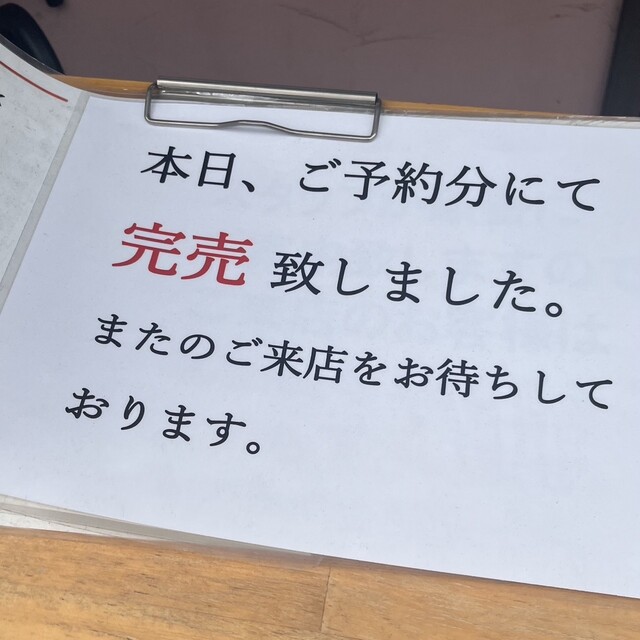 本日、ご予約分にて
完売 致しました。
またのご来店をお待ちして
おります。